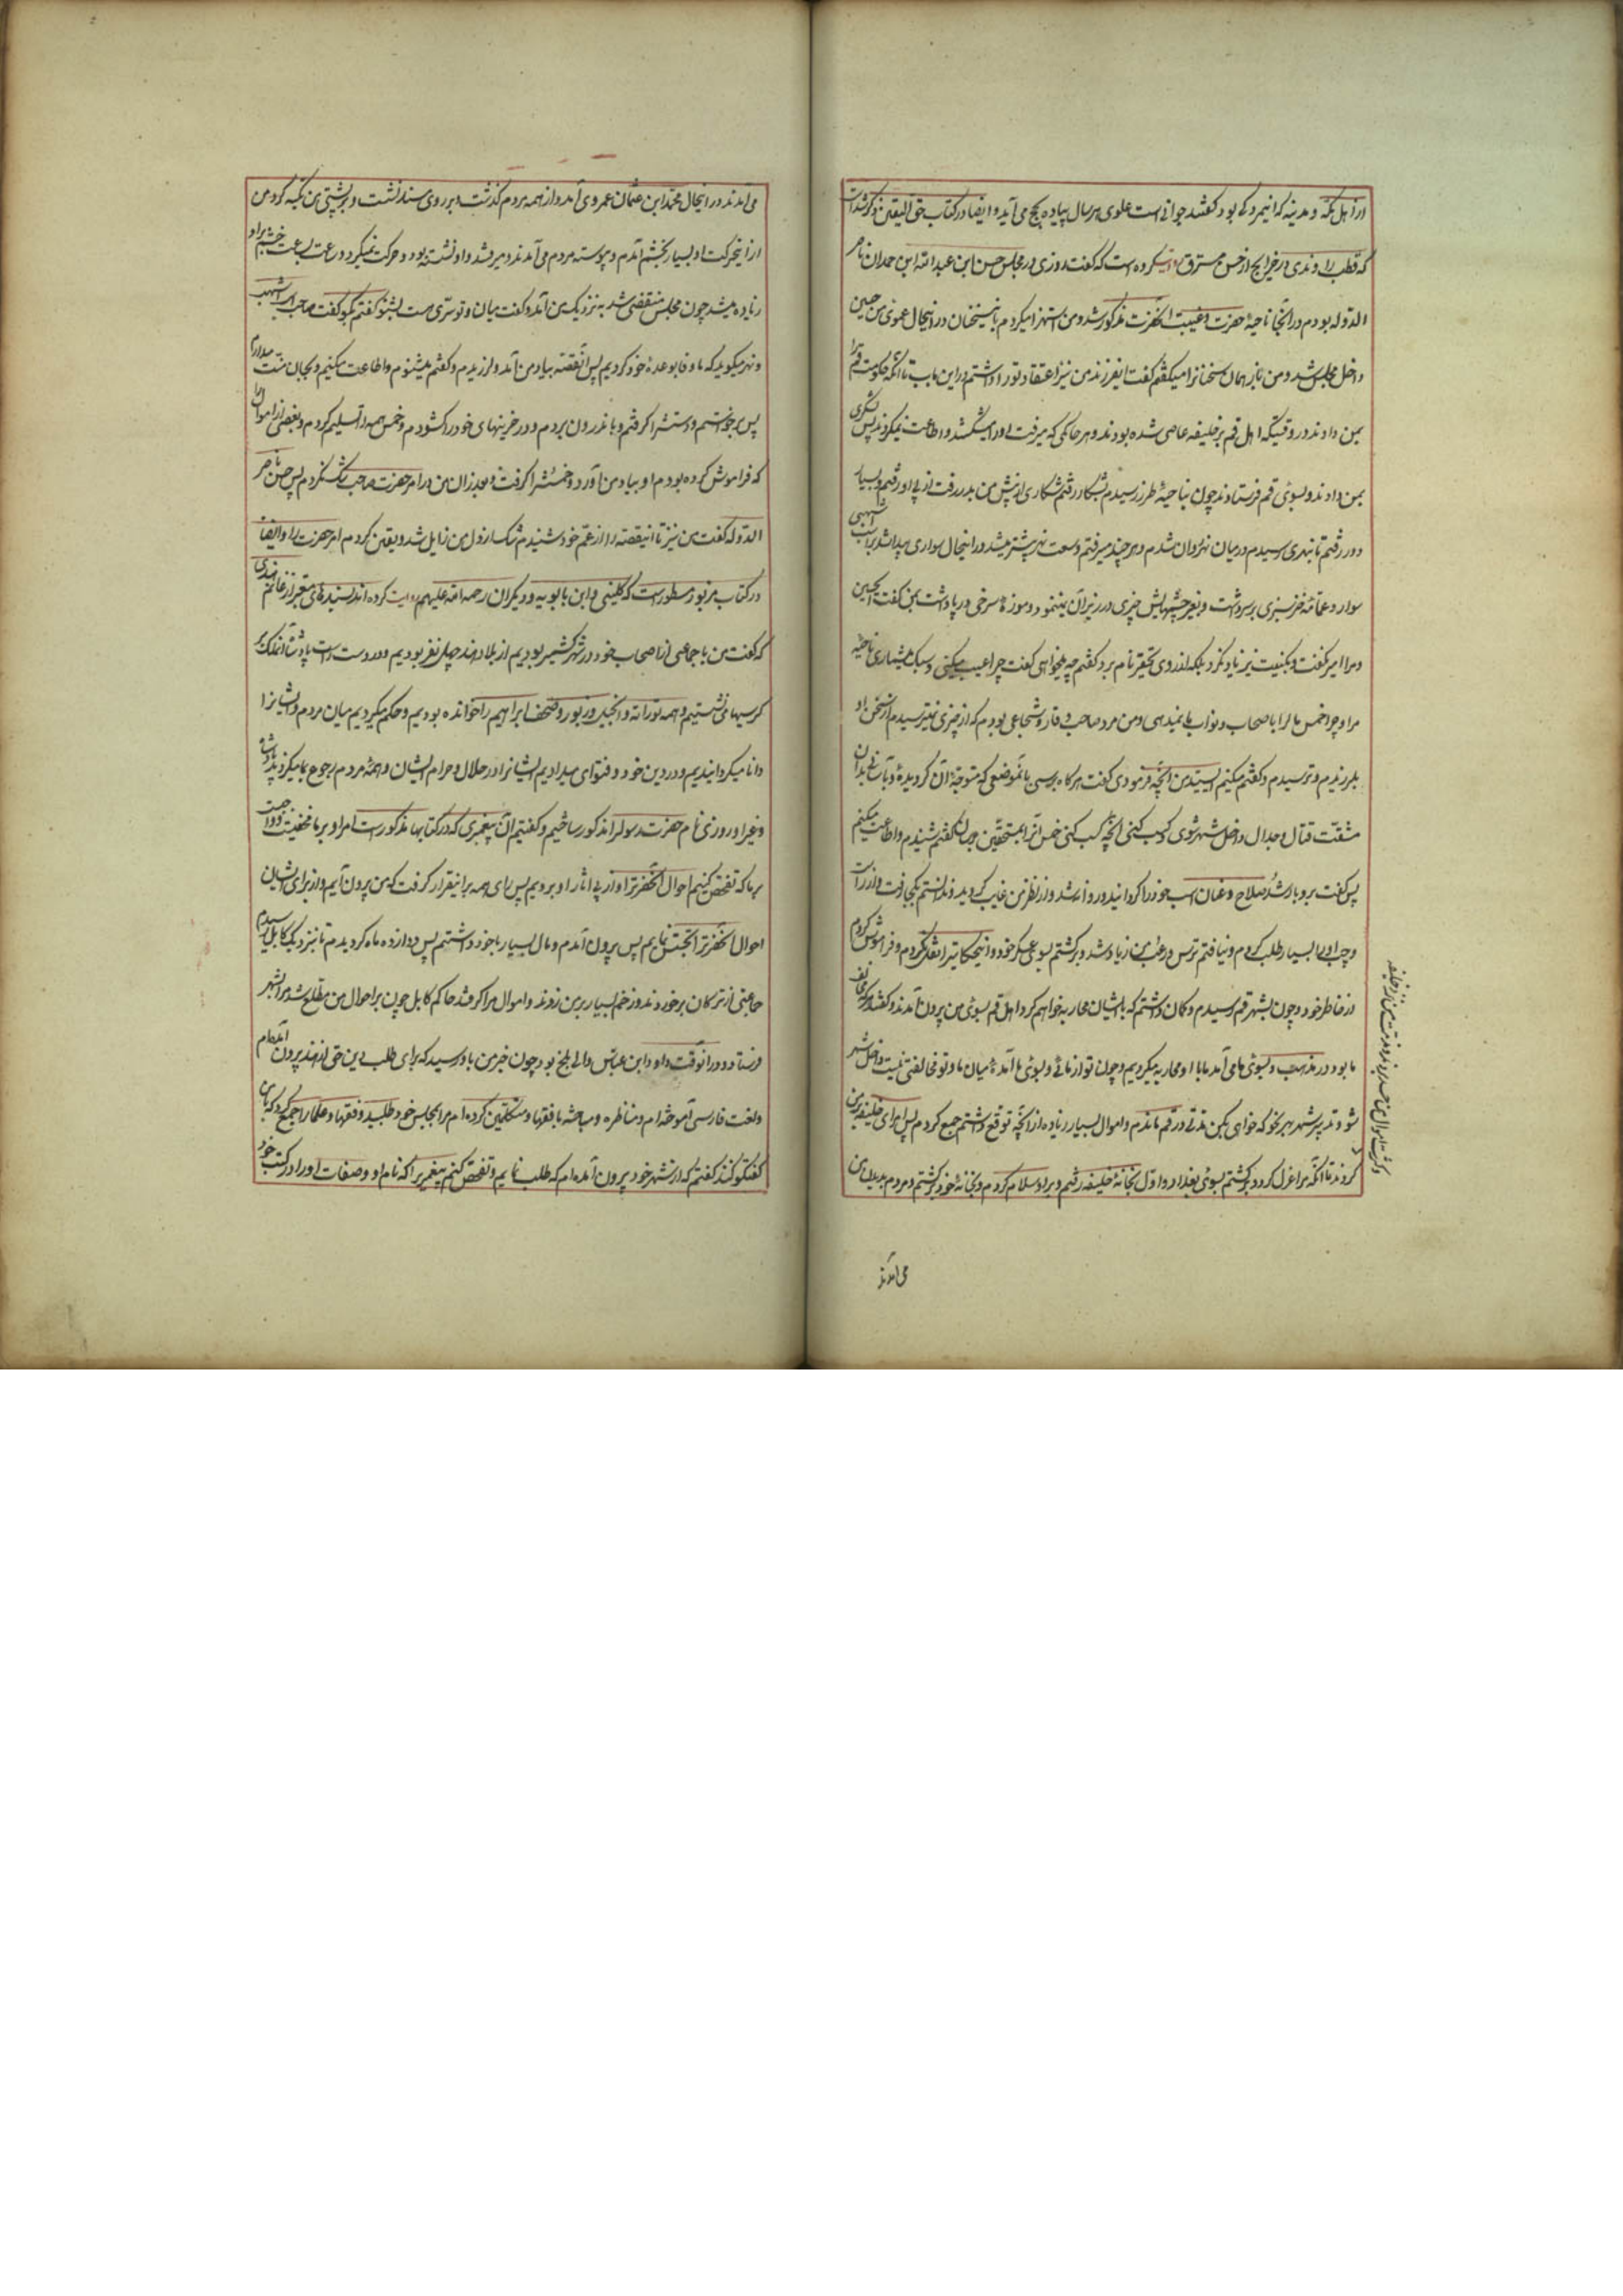 از اهل مکه و مدینه که اینمرد کی بود گفتند جوانی است علوی هر سال پیاده بحج می آید و ایضا در کتاب حق الیقین ذکر شده است
که قطب راوندی در خرایج از حسن مسترق روایت کرده است که گفت روزی در مجلس حسن ابن عبدالله ابن حمدان ناصر
الدوله بودم در آنجا ناحیهٔ حضرت و غیبت آنحضرت مذکور شد و من استهزا میکردم باینسخنان در اینحال عموی من حسین
داخل مجلس شد و من باز همان سخنانرا میگفتم گفت ایفرزند من نیز اعتقاد تو را داشتم در این باب تا آنکه حکومت قم را
بمن دادند در وقتیکه اهل قم بر خلیفه عاصی شده بودند و هر حاکمی که میرفت او را میکشتند و اطاعت نمیکردند پس لشکری
بمن دادند و بسوی قم فرستادند چون بناحیهٔ طرز رسیدم بشکار رفتم شکاری از پیش من بدر رفت از پی او رفتم و بسیار
دور رفتم تا بنهری رسیدم در میان نهر روان شدم و هر چند میرفتم وسعت نهر بیشتر میشد در اینحال سواری پیدا شد بر اسب اشهبی
سوار و عمامهٔ خز سبزی بر سر داشت و بغیر چشمهایش چیزی در زیر آن نمینمود و دو موزهٔ سرخی در پا داشت بمن گفت ای حسین
و مرا امیر نگفت و بکنیت نیز یاد نکرد بلکه از روی تحقیر نام برد گفتم چه میخواهی گفت چرا عیب میکنی و سبک میشماری ناحیه
مرا و چرا خمس مالرا باصحاب و نواب ما نمیدهی و من مرد صاحب وقار و شجاعی بودم که از چیزی نمیترسیدم از سخن او
بلرزیدم و ترسیدم و گفتم میکنم ای سید من آنچه فرمودی گفت هرگاه برسی بآنموضعی که متوجهٔ آن گردیدهٔ و بآسانی بدون
مشقت قتال و جدال داخل شهر شوی و کسب کنی آنچه کسب کنی خمس آنرا بمستحقین برسان گفتم شنیدم و اطاعت میکنم
پس گفت برو با رشد و صلاح و عنان اسب خود را گردانید و روانه شد و از نظر من غایب گردید و ندانستم بکجا رفت و از راست
و چپ او را بسیار طلب کردم و نیافتم ترس و رعب من زیاد شد و برگشتم بسوی عسکر خود و اینحکایترا نقل نکردم و فراموش کردم
از خاطر خود و چون بشهر قم رسیدم و گمان داشتم که با ایشان محاربه خواهم کرد اهل قم بسوی من بیرون آمدند و گفتند هر که مخالف
ما بود در مذهب و بسوی ما می آمد ما با او محاربه میکردیم و چون تو از مائی و بسوی ما آمدهٔ میان ما و تو مخالفتی نیست داخل شهر
شو و تدبیر شهر بهر نحو که خواهی بکن مدتی در قم ماندم و اموال بسیار زیاده از آنچه توقع داشتم جمع کردم پس امرای خلیفه بر من
کردند تا آنکه مرا عزل کرد و برگشتم بسوی بغداد و اول بخانهٔ خلیفه رفتم و بر او سلام کردم و بخانهٔ خود برگشتم و مردم بدیدن من
و کثرت اموال من حسد بردند و مذمت من نزد خلیفه
می آمدند
می آمدند در اینحال محمد ابن عثمان عمروی آمد و از همه مردم گذشت و بر روی مسند نشست و بر پشتی من تکیه کرد من
از اینحرکت او بسیار بخشم آمدم و پیوسته مردم می آمدند و میرفتند و او نشسته بود و حرکت نمیکرد و ساعت بساعت خشم من بر او
زیاده میشد چون مجلس منقضی شد به نزدیک من آمد و گفت میان من و تو سری هست بشنو گفتم بگو گفت صاحب اسب اشهب
و نهر میگوید که ما وفا بوعدهٔ خود کردیم پس آنقصه بیاد من آمد و لرزیدم و گفتم میشنوم و اطاعت میکنم و بجان منت میدارم
پس برخواستم و دستشرا گرفتم و باندرون بردم و در خزینهای خود را گشودم و خمس همه را تسلیم کردم و بعضی از اموال را
که فراموش کرده بودم او بیاد من آورد و خمسشرا گرفت و بعد از آن من در امر حضرت صاحب شک نکردم پس حسن ناصر
الدوله گفت من نیز تا اینقصه را از عم خود شنیدم شک از دل من زایل شد و یقین کردم امر حضرت را و ایضا
در کتاب مزبور مسطور است که کلینی و ابن بابویه و دیگران رحمه الله علیهم روایت کرده اند بسندهای معتبر از غانم هندی
که گفت من با جماعتی از اصحاب خود در شهر کشمیر بودیم از بلاد هند و چهل نفر بودیم و در دست راست پادشاه آنملک بر
کرسیها می نشستیم و همه توراة و انجیل و زبور و صحف ابراهیم را خوانده بودیم و حکم میکردیم میان مردم و ایشانرا
دانا میگردانیدیم در دین خود و فتوای میدادیم ایشانرا در حلال و حرام ایشان و همهٔ مردم رجوع بما میکردند پادشاه
و غیر او روزی نام حضرت رسولرا مذکور ساختیم و گفتیم آن پیغمبری که در کتابها مذکور است امر او بر ما مخفیست و واجب است
بر ما که تفحص کنیم احوال آنحضرترا و از پی آثار او برویم پس رای همه بر این قرار گرفت که من بیرون آیم و از برای ایشان
احوال آنحضرترا تجسس نمایم پس بیرون آمدم و مال بسیار با خود داشتم پس دوازده ماه گردیدم تا بنزدیک کابل رسیدم
جماعتی از ترکان برخوردند و زخم بسیار بر من زدند و اموال مرا گرفتند حاکم کابل چون بر احوال من مطلع شد مرا بشهر بلخ
فرستاد و در آنوقت داود ابن عباس والی بلخ بود چون خبر من باو رسید که برای طلب دین حق از هند بیرون آمده‌ام
و لغت فارسی آموخته‌ام و مناظره و مباحثه با فقها و متکلمین کرده‌ام مرا بمجلس خود طلبید و فقها و علما را جمع کرد که با من
گفتگو کنند گفتم که از شهر خود بیرون آمده‌ام که طلب نمایم و تفحص کنم پیغمبریرا که نام او و صفات او را در کتب خود